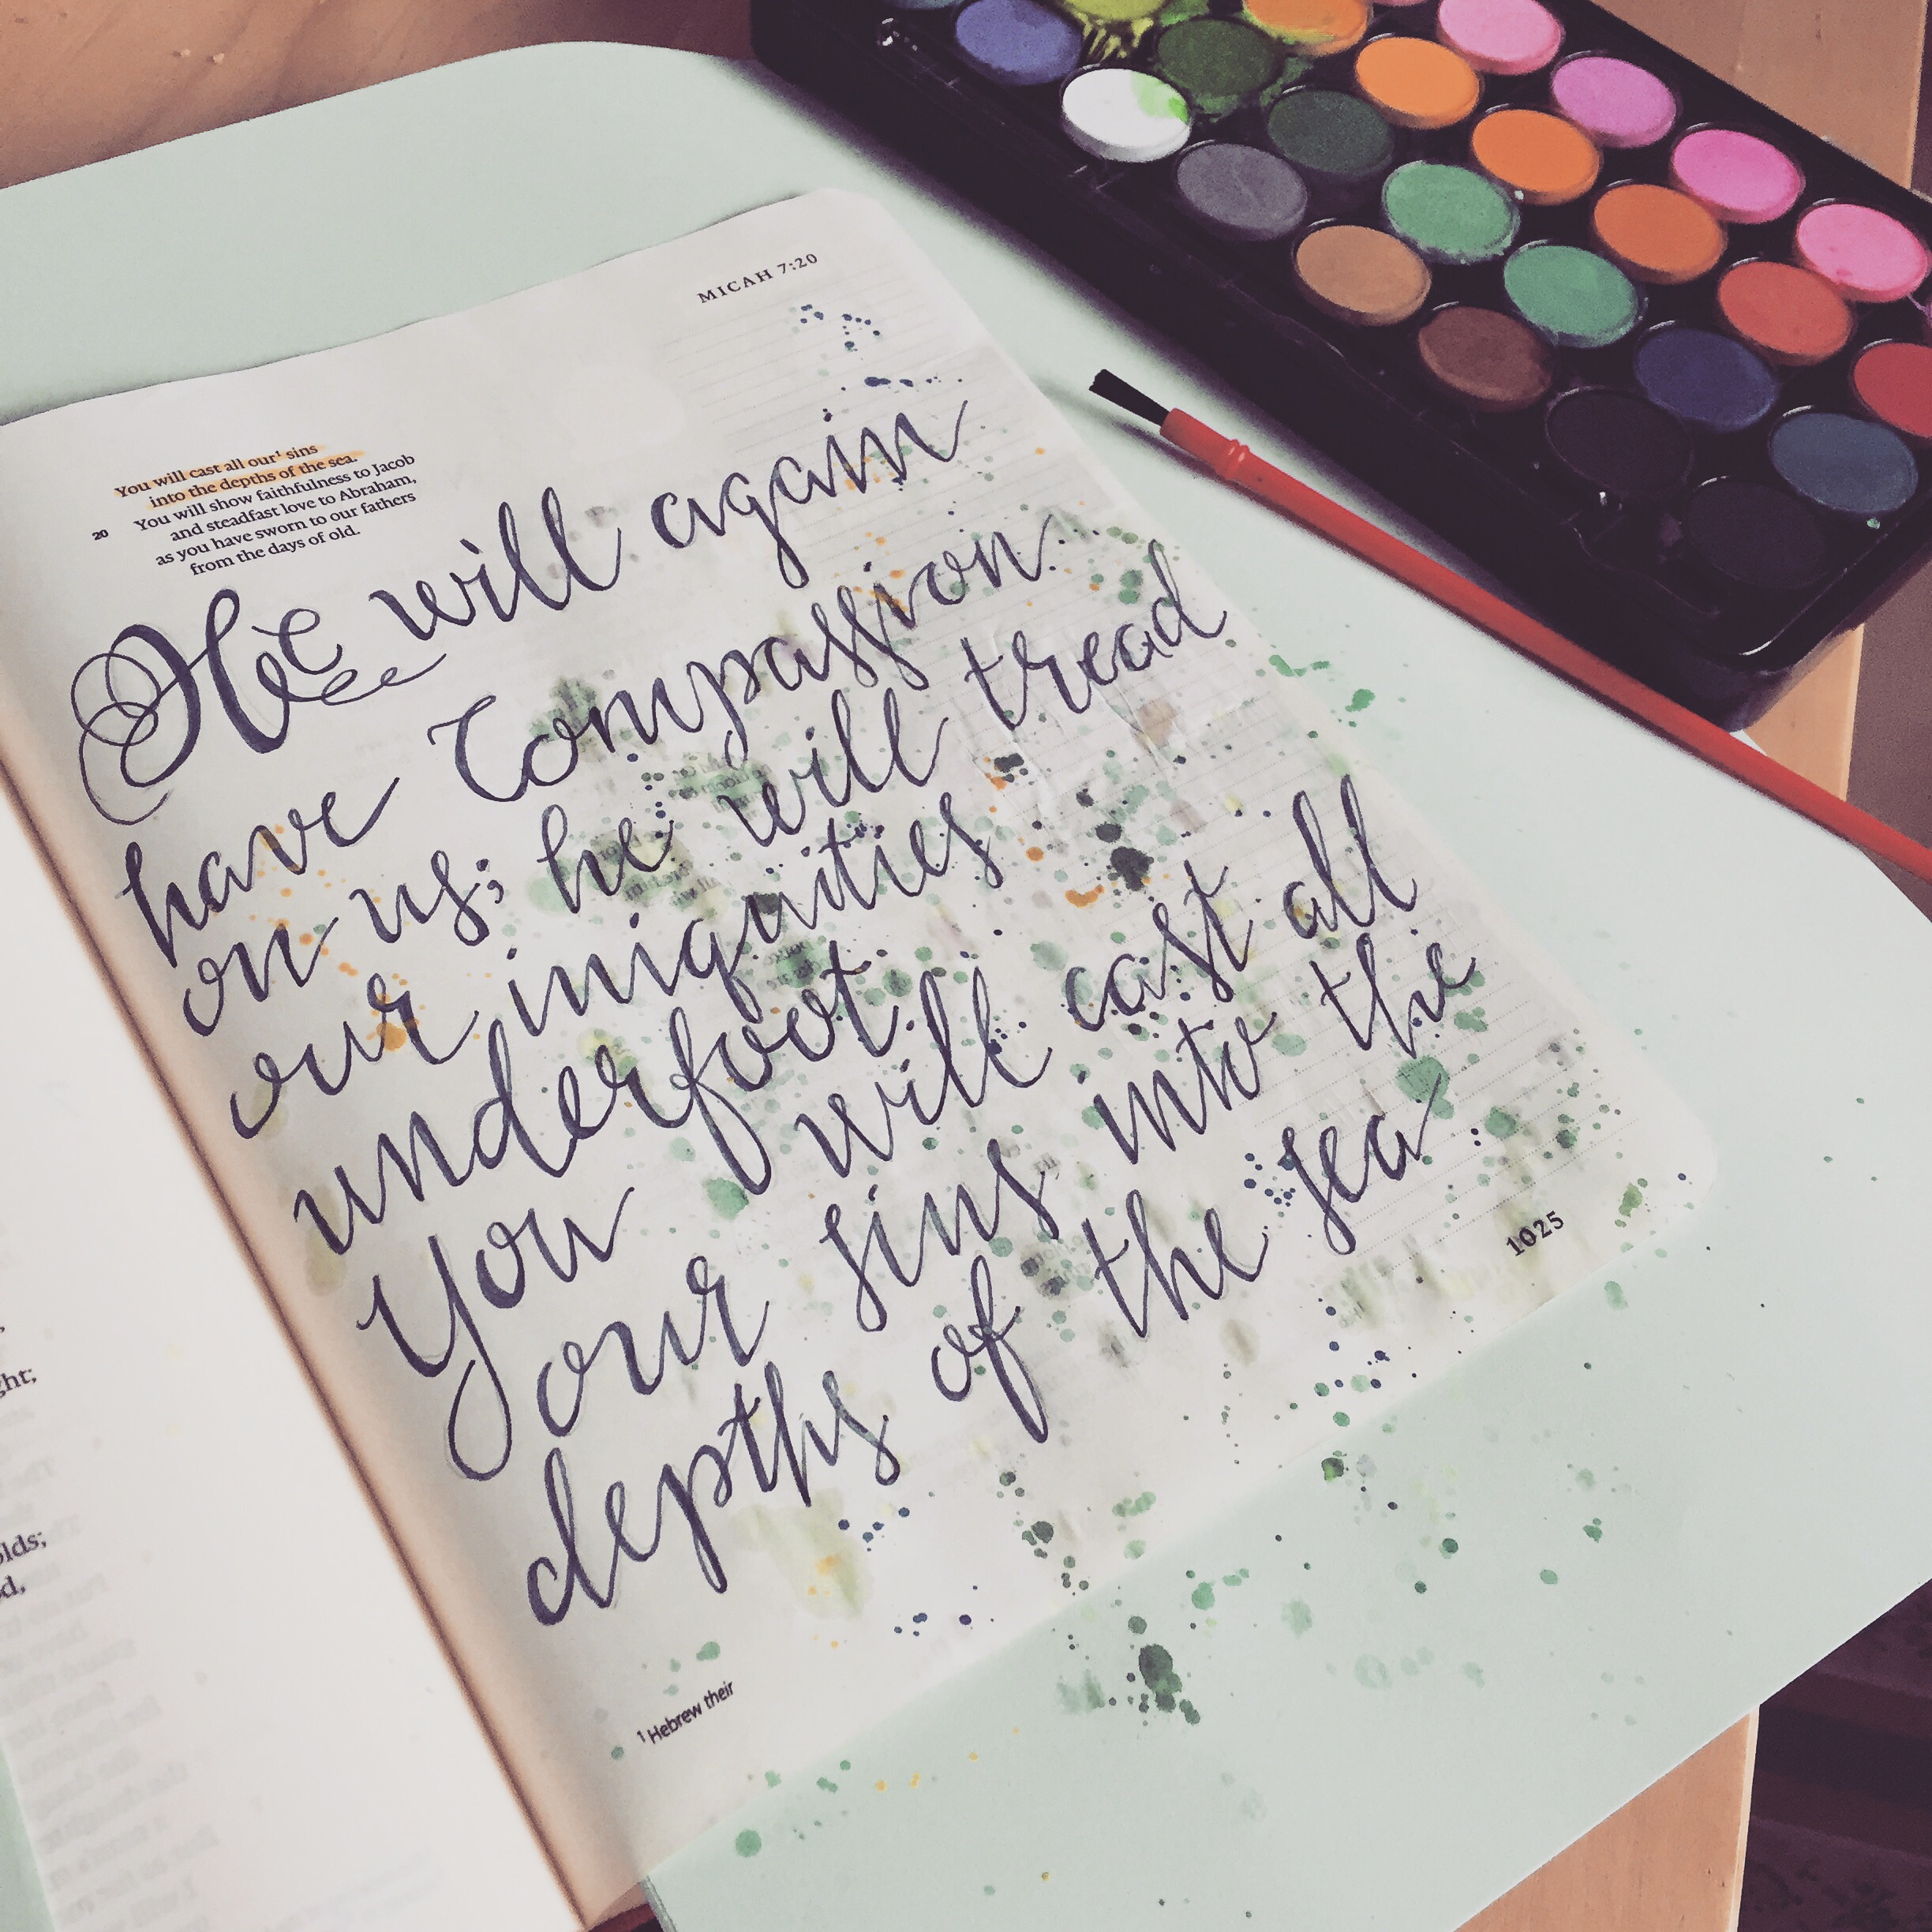 MICAH 7:20
You will cast all our¹ sins
into the depths of the sea.
20 You will show faithfulness to Jacob
and steadfast love to Abraham,
as you have sworn to our fathers
from the days of old.
He will again
have Compassion
on us; he will tread
our iniquities
underfoot.
You will cast all
our sins into the
depths of the sea
1025
¹ Hebrew their